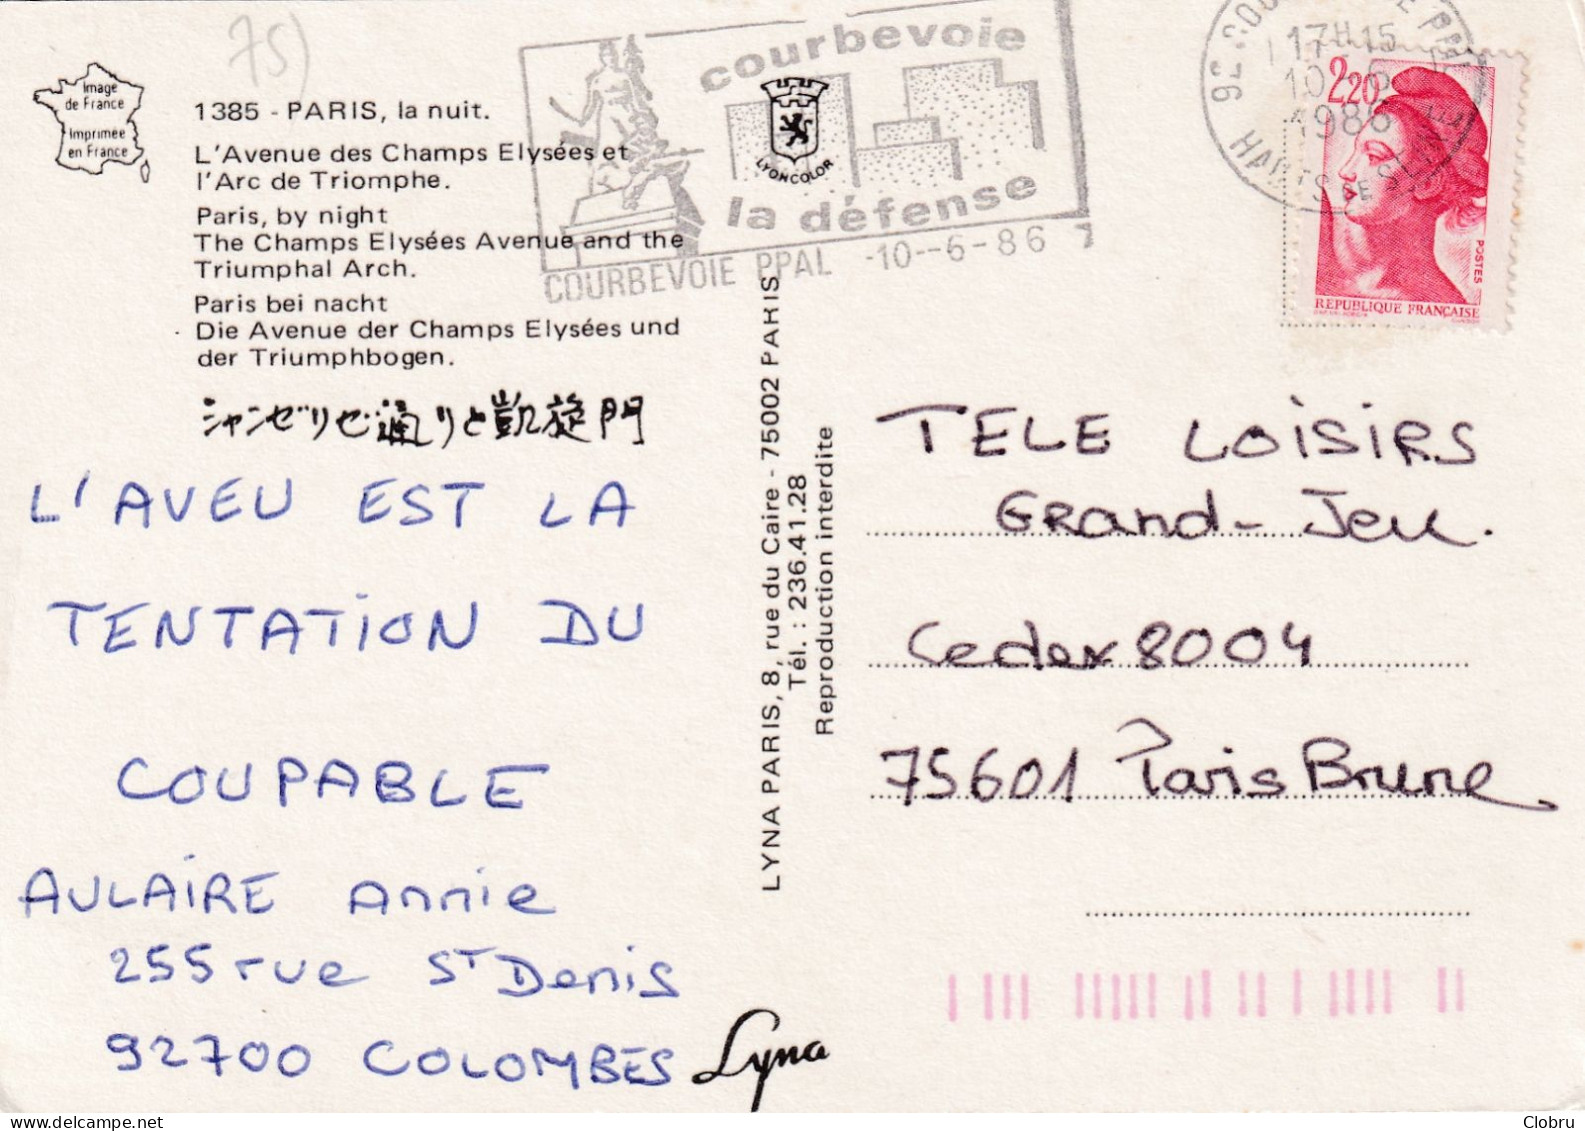 75)
Image
de France
Imprimée
en France
1385 - PARIS, la nuit.
L'Avenue des Champs Elysées et
l'Arc de Triomphe.
Paris, by night
The Champs Elysées Avenue and the
Triumphal Arch.
Paris bei nacht
Die Avenue der Champs Elysées und
der Triumphbogen.
シャンゼリゼ通りと凱旋門
courbevoie
la défense
COURBEVOIE PPAL -10--6-86
LYONCOLOR
17H15
10-6
1986
HAUTS DE SEINE
2,20
POSTES
REPUBLIQUE FRANÇAISE
L'AVEU EST LA
TENTATION DU
COUPABLE
AULAIRE Annie
255 rue ST Denis
92700 COLOMBES
Lyna
LYNA PARIS, 8, rue du Caire - 75002 PARIS
Tél. : 236.41.28
Reproduction interdite
TELE LOISIRS
Grand-Jeu.
Cedex 8004
75601 Paris Brune
Clobru